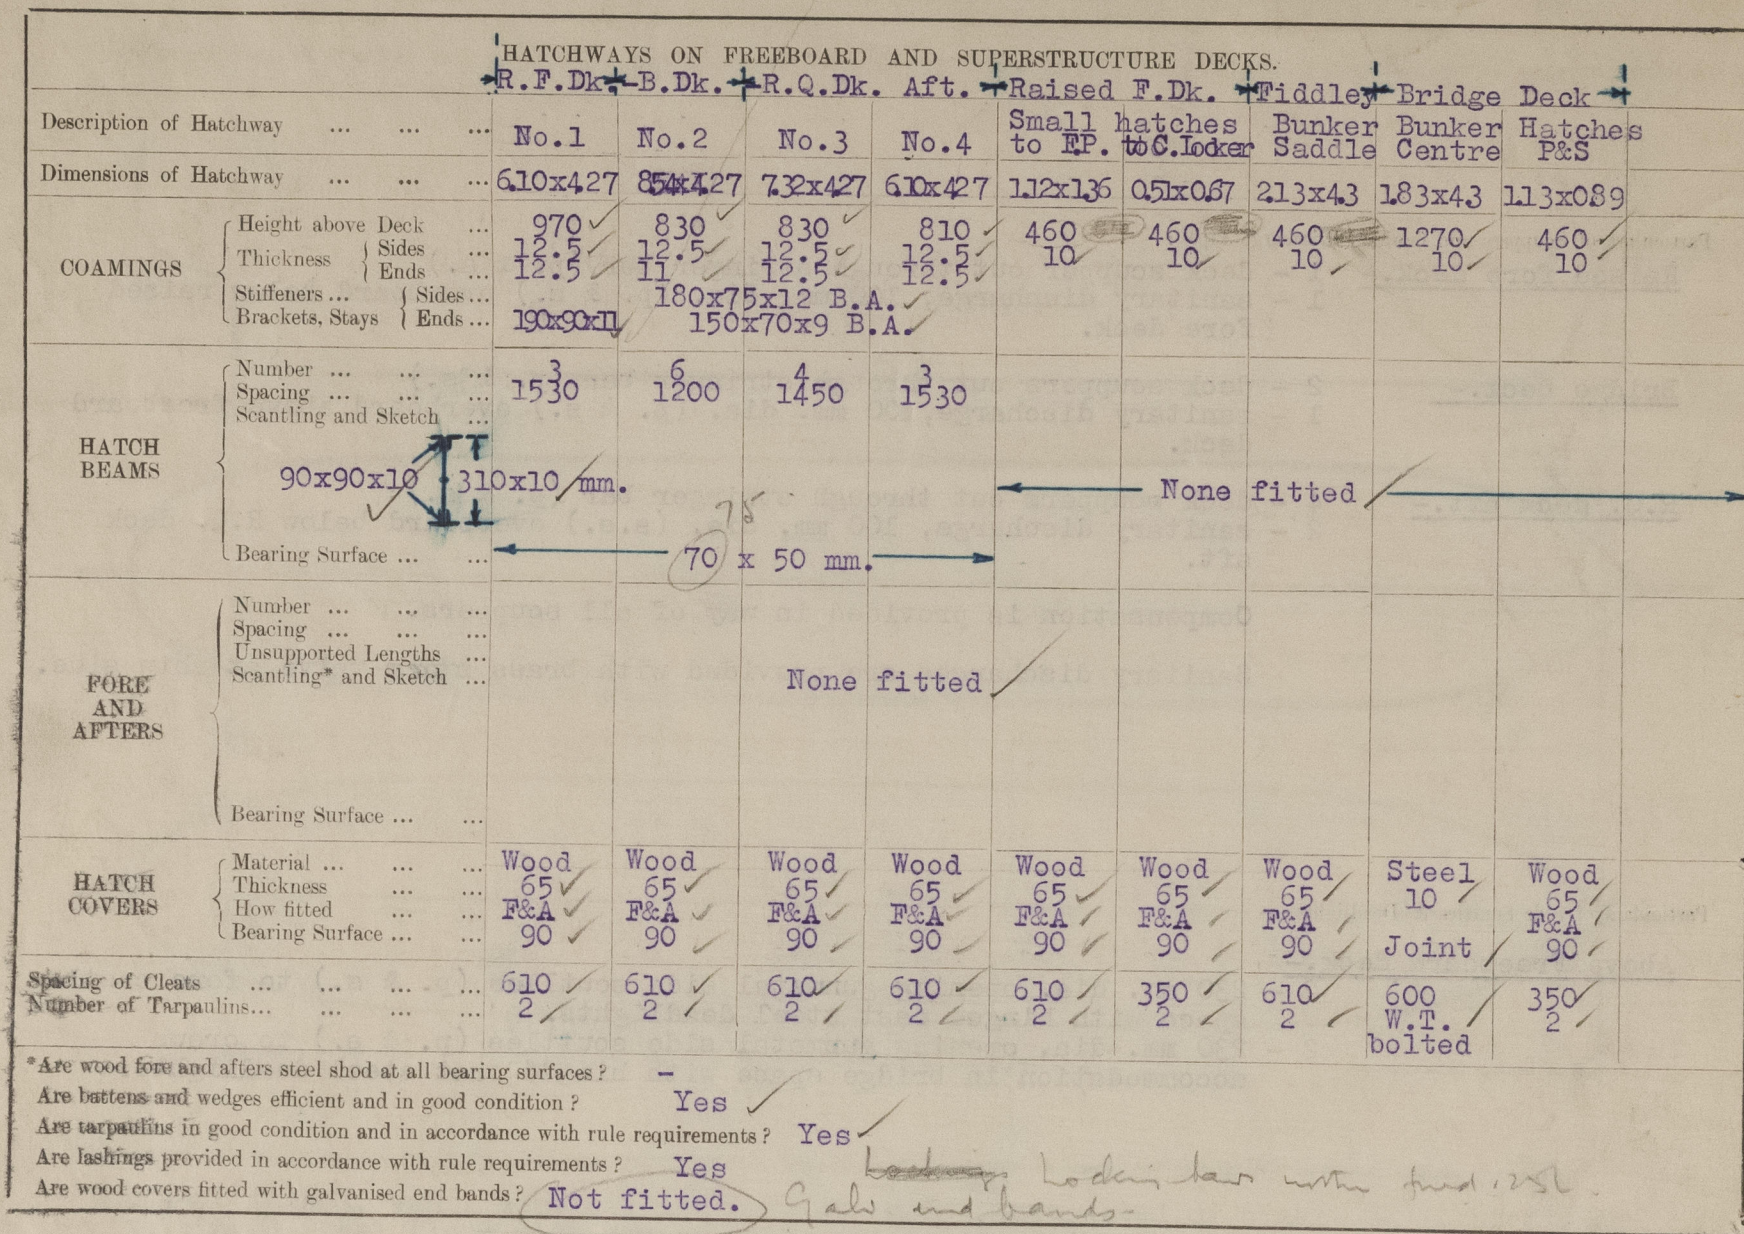 HATCHWAYS ON FREEBOARD AND SUPERSTRUCTURE DECKS.
R.F.Dk. B.Dk. R.Q.Dk. Aft. Raised F.Dk. Fiddley Bridge Deck
Description of Hatchway ... ... ... No.1 No.2 No.3 No.4 Small hatches to F.P. to C.Locker Bunker Saddle Bunker Centre Hatches P&S
Dimensions of Hatchway ... ... ... 6.10x4.27 8.54x4.27 7.32x4.27 6.10x4.27 1.12x1.36 0.51x0.67 2.13x4.3 1.83x4.3 1.13x0.89
COAMINGS
Height above Deck ... 970 830 830 810 460 460 460 1270 460
Thickness Sides ... 12.5 12.5 12.5 12.5 10 10 10 10 10
Ends ... 12.5 11 12.5 12.5
Stiffeners ... Sides ... 180x75x12 B.A.
Brackets, Stays Ends ... 190x90x11 150x70x9 B.A.
HATCH BEAMS
Number ... ... ... 3 6 4 3
Spacing ... ... ... 1530 1200 1450 1530
Scantling and Sketch ...
90x90x10 310x10 mm. None fitted
75
Bearing Surface ... ... 70 x 50 mm.
FORE AND AFTERS
Number ... ... ...
Spacing ... ... ...
Unsupported Lengths ...
Scantling* and Sketch ... None fitted
Bearing Surface ... ...
HATCH COVERS
Material ... ... ... Wood Wood Wood Wood Wood Wood Wood Steel Wood
Thickness ... ... 65 65 65 65 65 65 65 10 65
How fitted ... ... F&A F&A F&A F&A F&A F&A F&A F&A
Bearing Surface ... ... 90 90 90 90 90 90 90 Joint 90
Spacing of Cleats ... ... ... ... 610 610 610 610 610 350 610 600 350
Number of Tarpaulins... ... ... ... 2 2 2 2 2 2 2 W.T. bolted 2
*Are wood fore and afters steel shod at all bearing surfaces? -
Are battens and wedges efficient and in good condition? Yes
Are tarpaulins in good condition and in accordance with rule requirements? Yes
Are lashings provided in accordance with rule requirements? Yes Locking bars
Are wood covers fitted with galvanised end bands? Not fitted. Galv end bands-